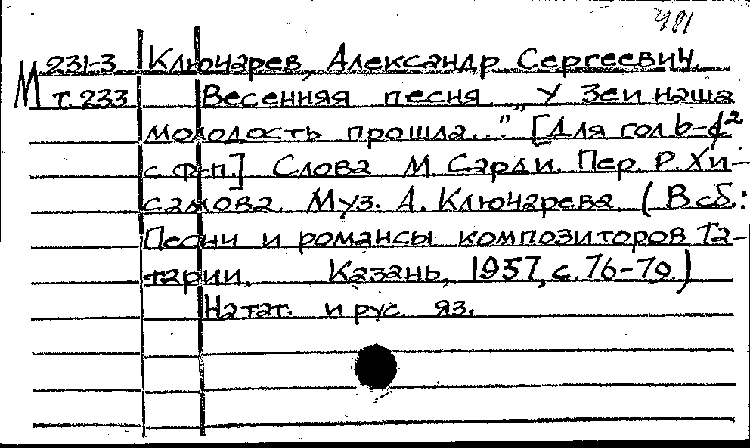 491
231-3 Ключарев, Александр Сергеевич.
М т. 233 Весенняя песня „У Зеи наша
молодость прошла..." [Для гол b-d²
с ф-п.] Слова М. Сарди. Пер. Р. Хи-
самова. Муз. А. Ключарева. (В сб.:
Песни и романсы композиторов Та-
тарии. Казань, 1957, с. 76-79.)
На тат. и рус яз.